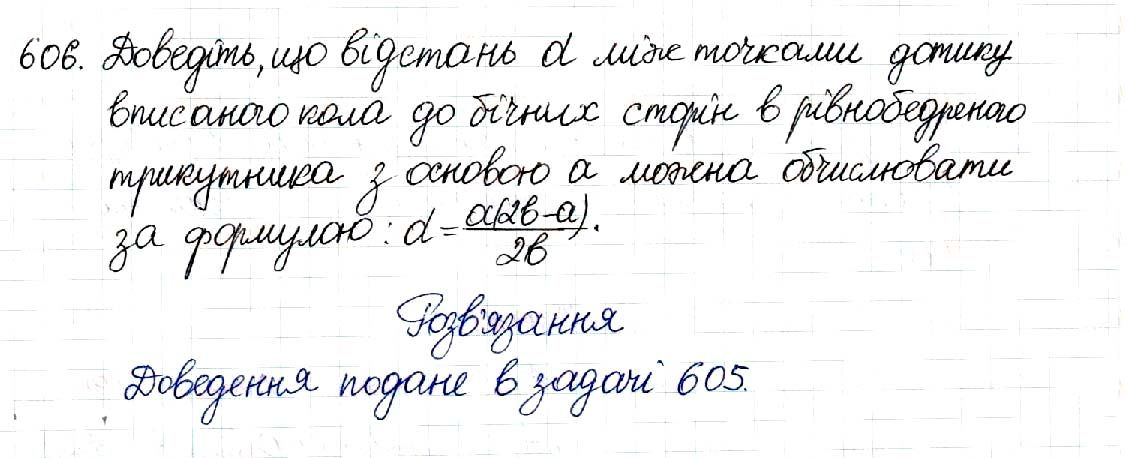 606. Доведіть, що відстань d між точками дотику
вписаного кола до бічних сторін в рівнобедреного
трикутника з основою а можна обчислювати
за формулою: d = a(2b-a)/2b.
Розв'язання
Доведення подане в задачі 605.